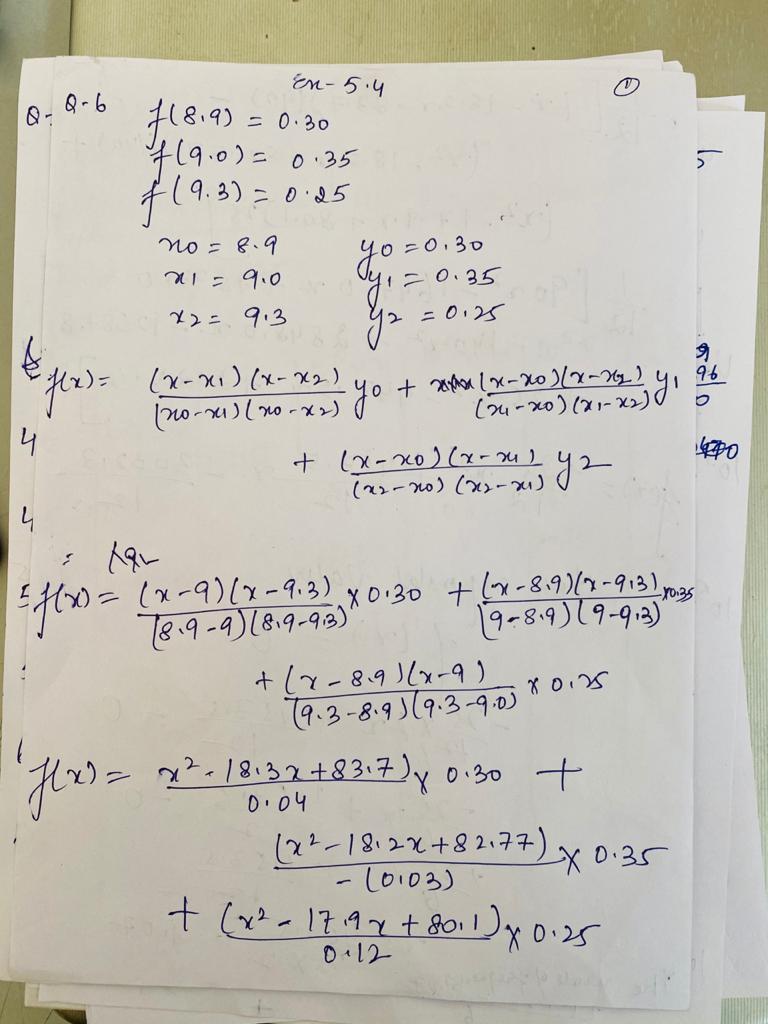 Ex-5.4
①
Q- Q-6 f(8.9) = 0.30
f(9.0) = 0.35
f(9.3) = 0.25
x0 = 8.9 y0 = 0.30
x1 = 9.0 y1 = 0.35
x2 = 9.3 y2 = 0.25
f(x) = (x-x1)(x-x2)/(x0-x1)(x0-x2) y0 + (x-x0)(x-x2)/(x1-x0)(x1-x2) y1
+ (x-x0)(x-x1)/(x2-x0)(x2-x1) y2
f(x) = (x-9)(x-9.3)/(8.9-9)(8.9-9.3) × 0.30 + (x-8.9)(x-9.3)/(9-8.9)(9-9.3) × 0.35
+ (x-8.9)(x-9)/(9.3-8.9)(9.3-9.0) × 0.25
f(x) = x²-18.3x+83.7)/0.04 × 0.30 +
(x²-18.2x+82.77)/-(0.03) × 0.35
+ (x²-17.9x+80.1)/0.12 × 0.25